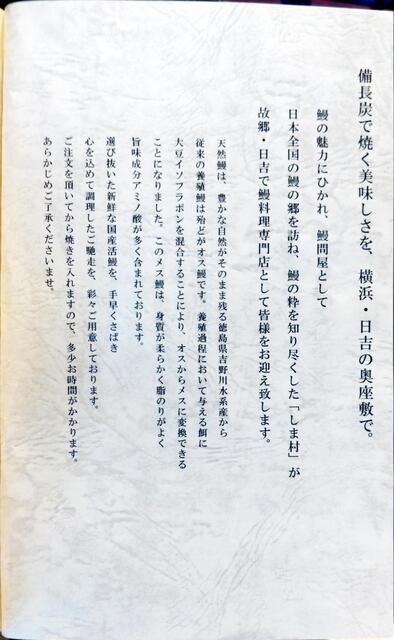 備長炭で焼く美味しさを、横浜・日吉の奥座敷で。
鰻の魅力にひかれ、鰻問屋として
日本全国の鰻の郷を訪ね、鰻の粋を知り尽くした「しま村」が
故郷・日吉で鰻料理専門店として皆様をお迎え致します。
天然鰻は、豊かな自然がそのまま残る徳島県吉野川水系産から
従来の養殖鰻は殆どがオス鰻です。養殖過程において与える餌に
大豆イソフラボンを混合することにより、オスからメスに変換できる
ことになりました。このメス鰻は、身質が柔らかく脂のりがよく
旨味成分アミノ酸が多く含まれております。
選び抜いた新鮮な国産活鰻を、手早くさばき
心を込めて調理したご馳走を、彩々ご用意しております。
ご注文を頂いてから焼きを入れますので、多少お時間がかかります。
あらかじめご了承くださいませ。